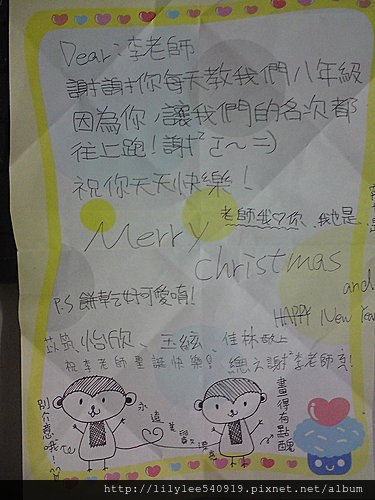 Dear:李老師
謝謝你每天教我們八年級
因為你,讓我們的名次都
往上跑!謝²ㄛ~=)
祝你天天快樂!
老師我♡你
我也是
Merry
christmas
and
HAPPY New Year
P.S 餅乾好可愛唷!
怡欣、玉絃 佳林敬上
祝李老師聖誕快樂!
總之謝²李老師ㄛ!
別介意哦
永遠美麗
畫得有點醜
http://lilylee540919.pixnet.net/album